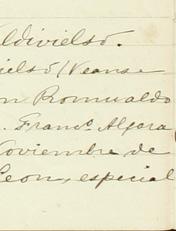 ldivielso.
ielso (Véanse
n Romualdo
. Franco. Algara
Noviembre de
Leon, especial